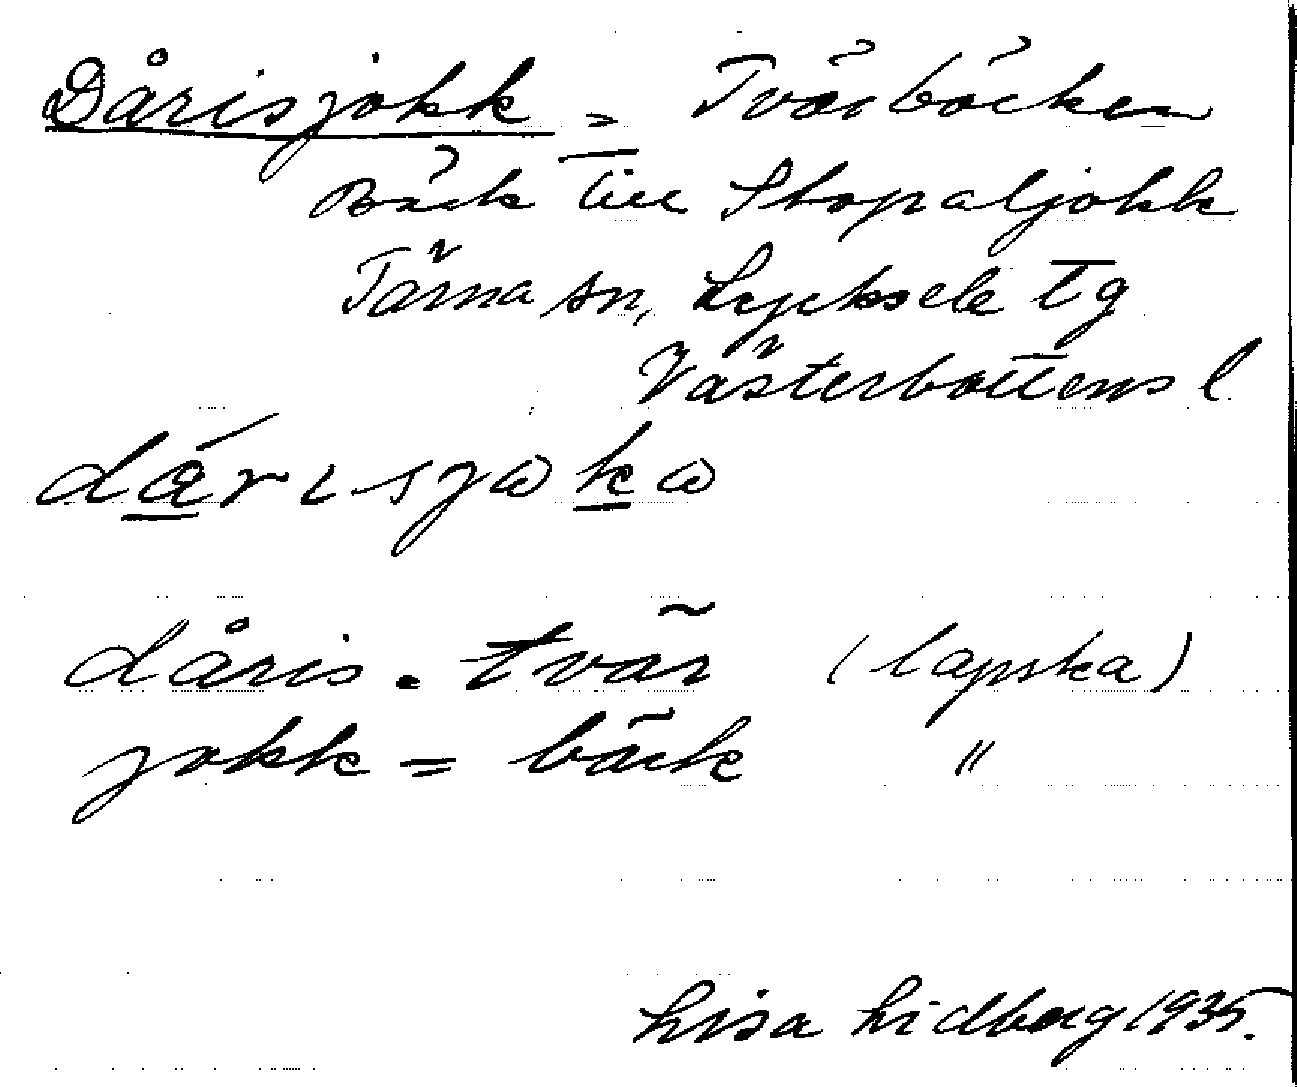 Dårisjokk = Tvärbäcken
Bäck till Stopaljokk
Tärna sn, Lycksele tg
Västerbottens l
dårisjoko
dåris = tvär (lapska)
jokk = bäck "
Lisa Lidberg 1935.